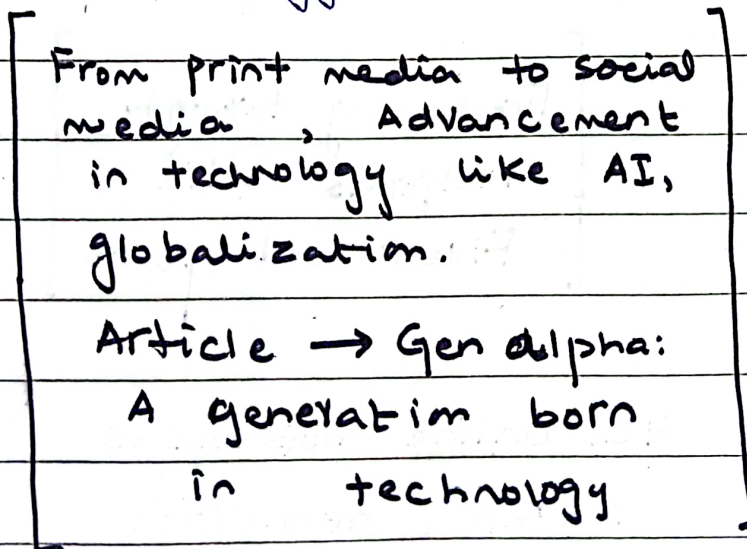 From print media to social
media, Advancement
in technology like AI,
globalization.
Article → Gen alpha:
A generation born
in technology